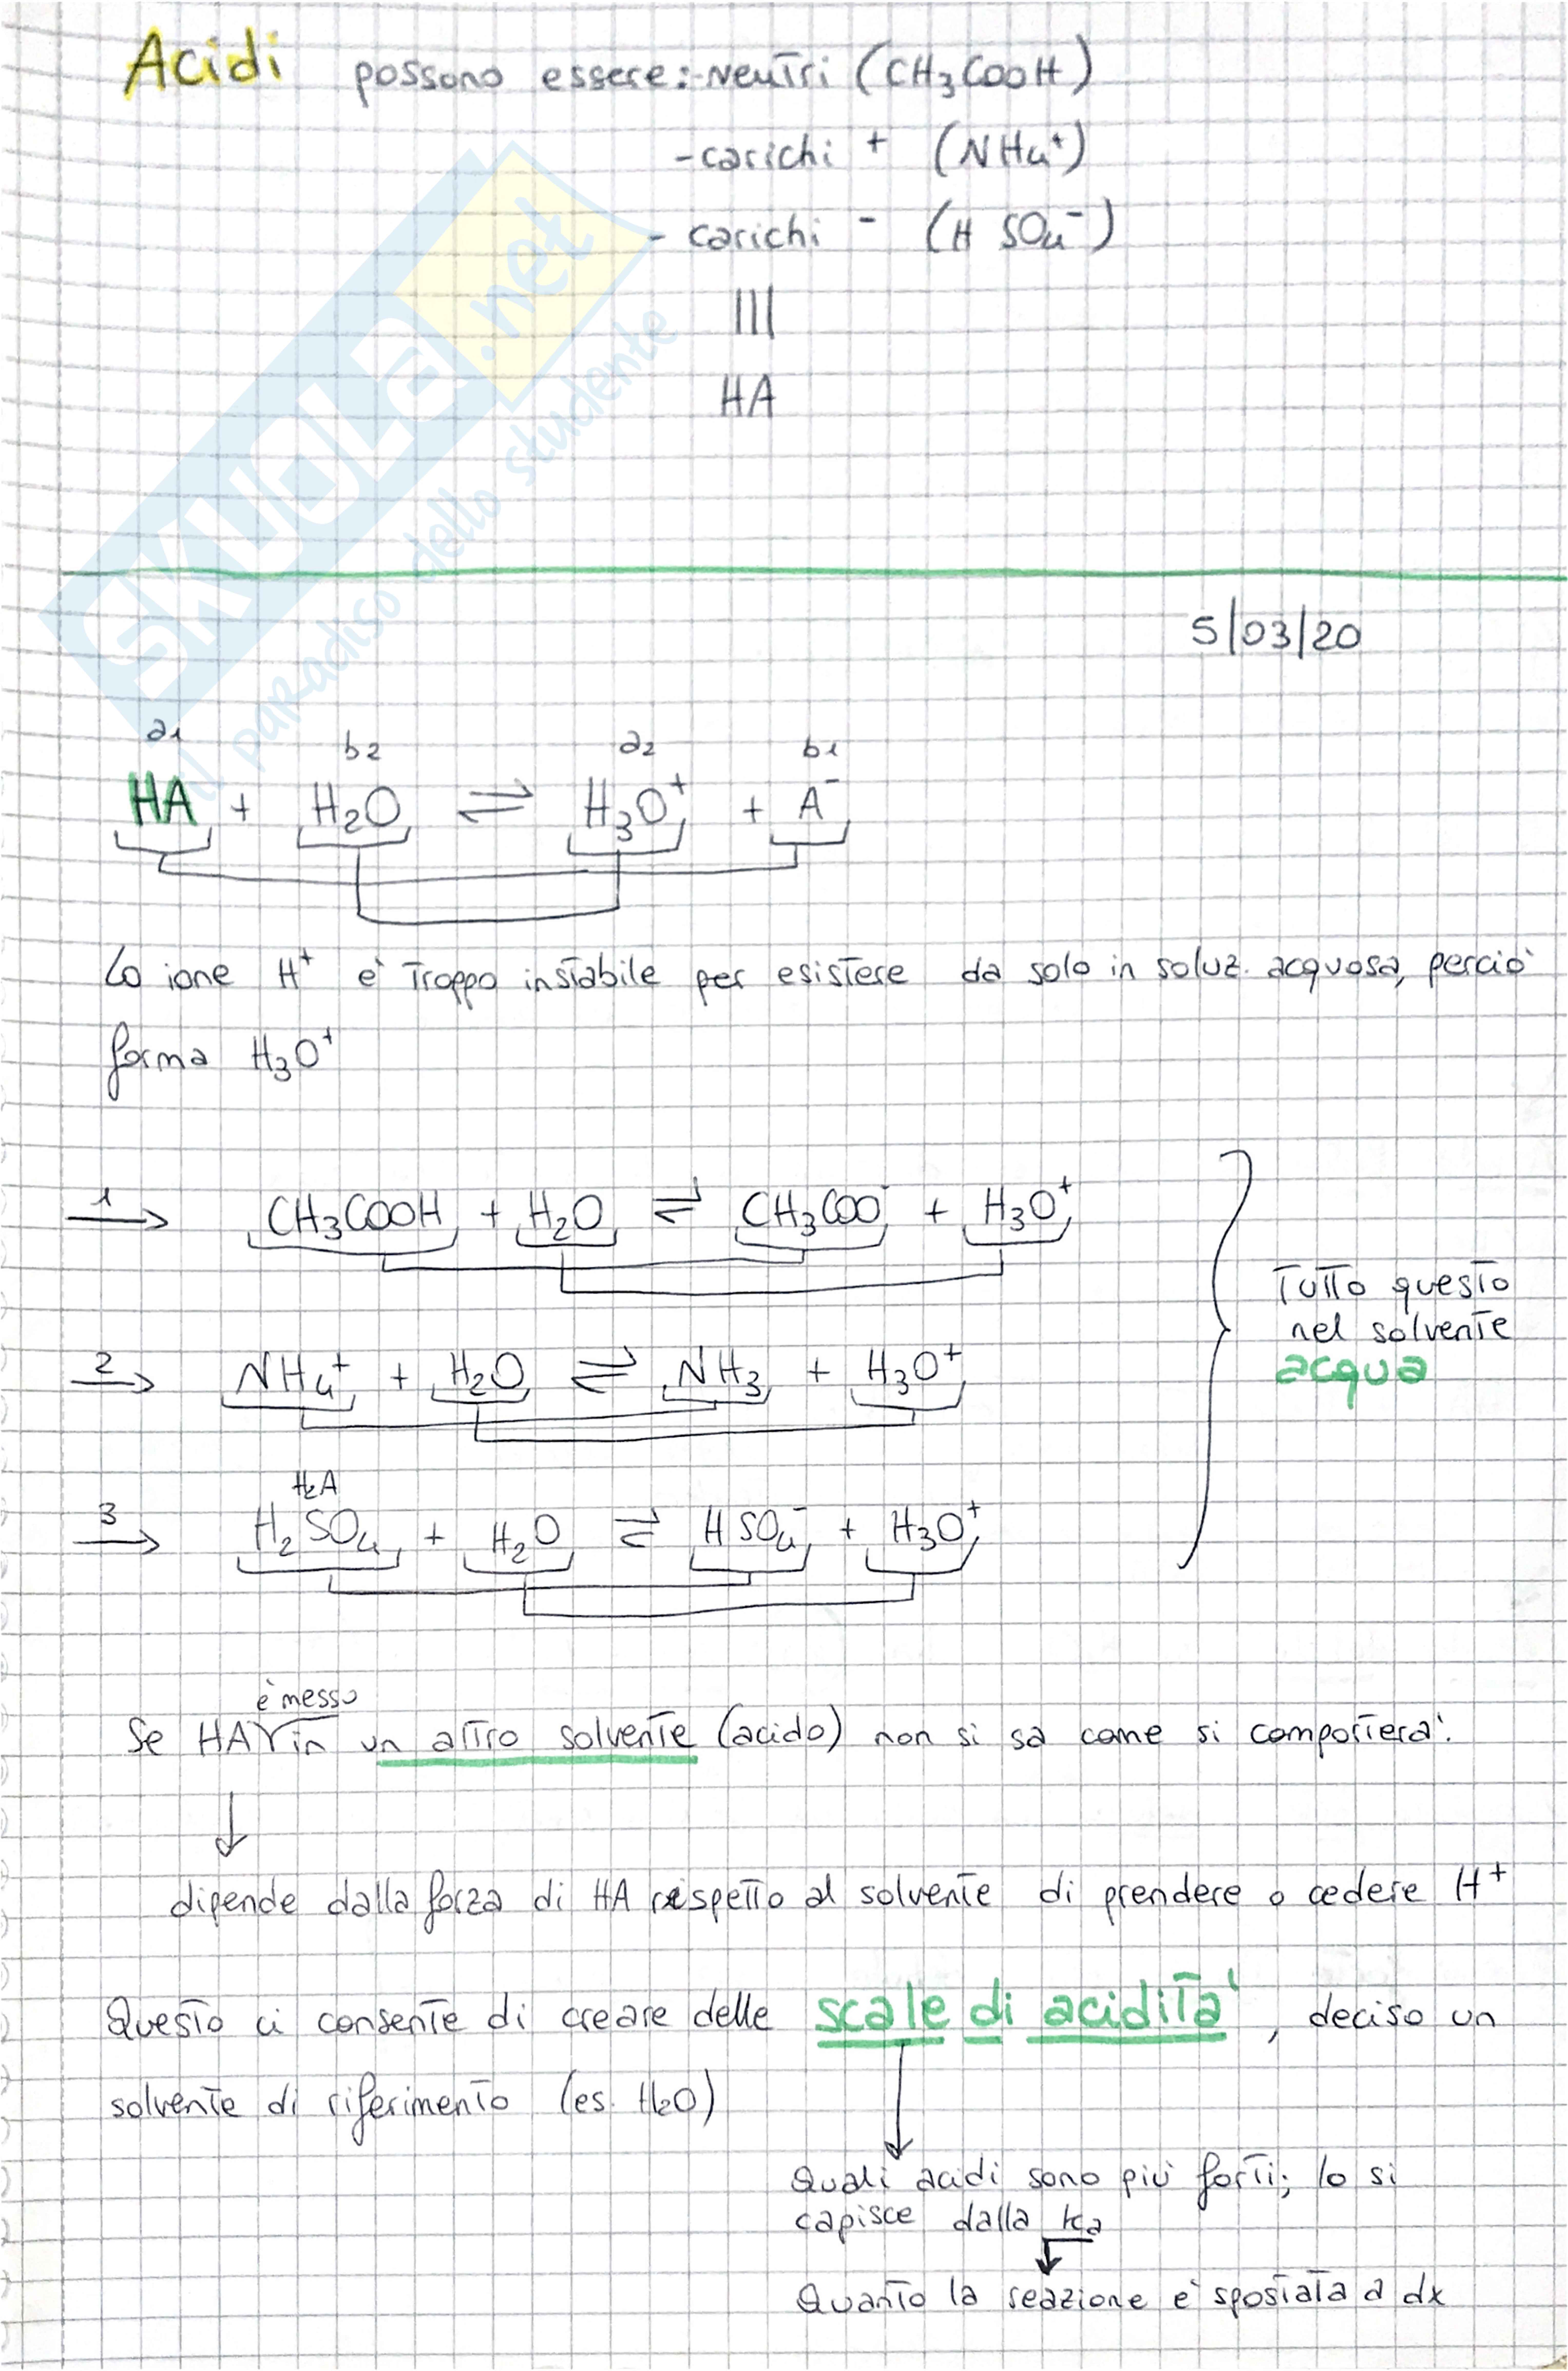 Acidi possono essere: - neutri (CH₃COOH)
- carichi + (NH₄⁺)
- carichi - (HSO₄⁻)
|||
HA
SKUOLA.net
il paradiso dello studente
5/03/20
a₁ b₂ a₂ b₁
HA + H₂O ⇌ H₃O⁺ + A⁻
Lo ione H⁺ e' troppo instabile per esistere da solo in soluz. acquosa, perciò
forma H₃O⁺
1→ CH₃COOH + H₂O ⇌ CH₃COO⁻ + H₃O⁺
2→ NH₄⁺ + H₂O ⇌ NH₃ + H₃O⁺
H₂A
3→ H₂SO₄ + H₂O ⇌ HSO₄⁻ + H₃O⁺
Tutto questo
nel solvente
acqua
è messo
Se HA in un altro solvente (acido) non si sa come si comporterà:
↓
dipende dalla forza di HA rispetto al solvente di prendere o cedere H⁺
Questo ci consente di creare delle scale di acidità, deciso un
solvente di riferimento (es. H₂O)
Quali acidi sono più forti; lo si
capisce dalla ka
Quanto la reazione e' spostata a dx